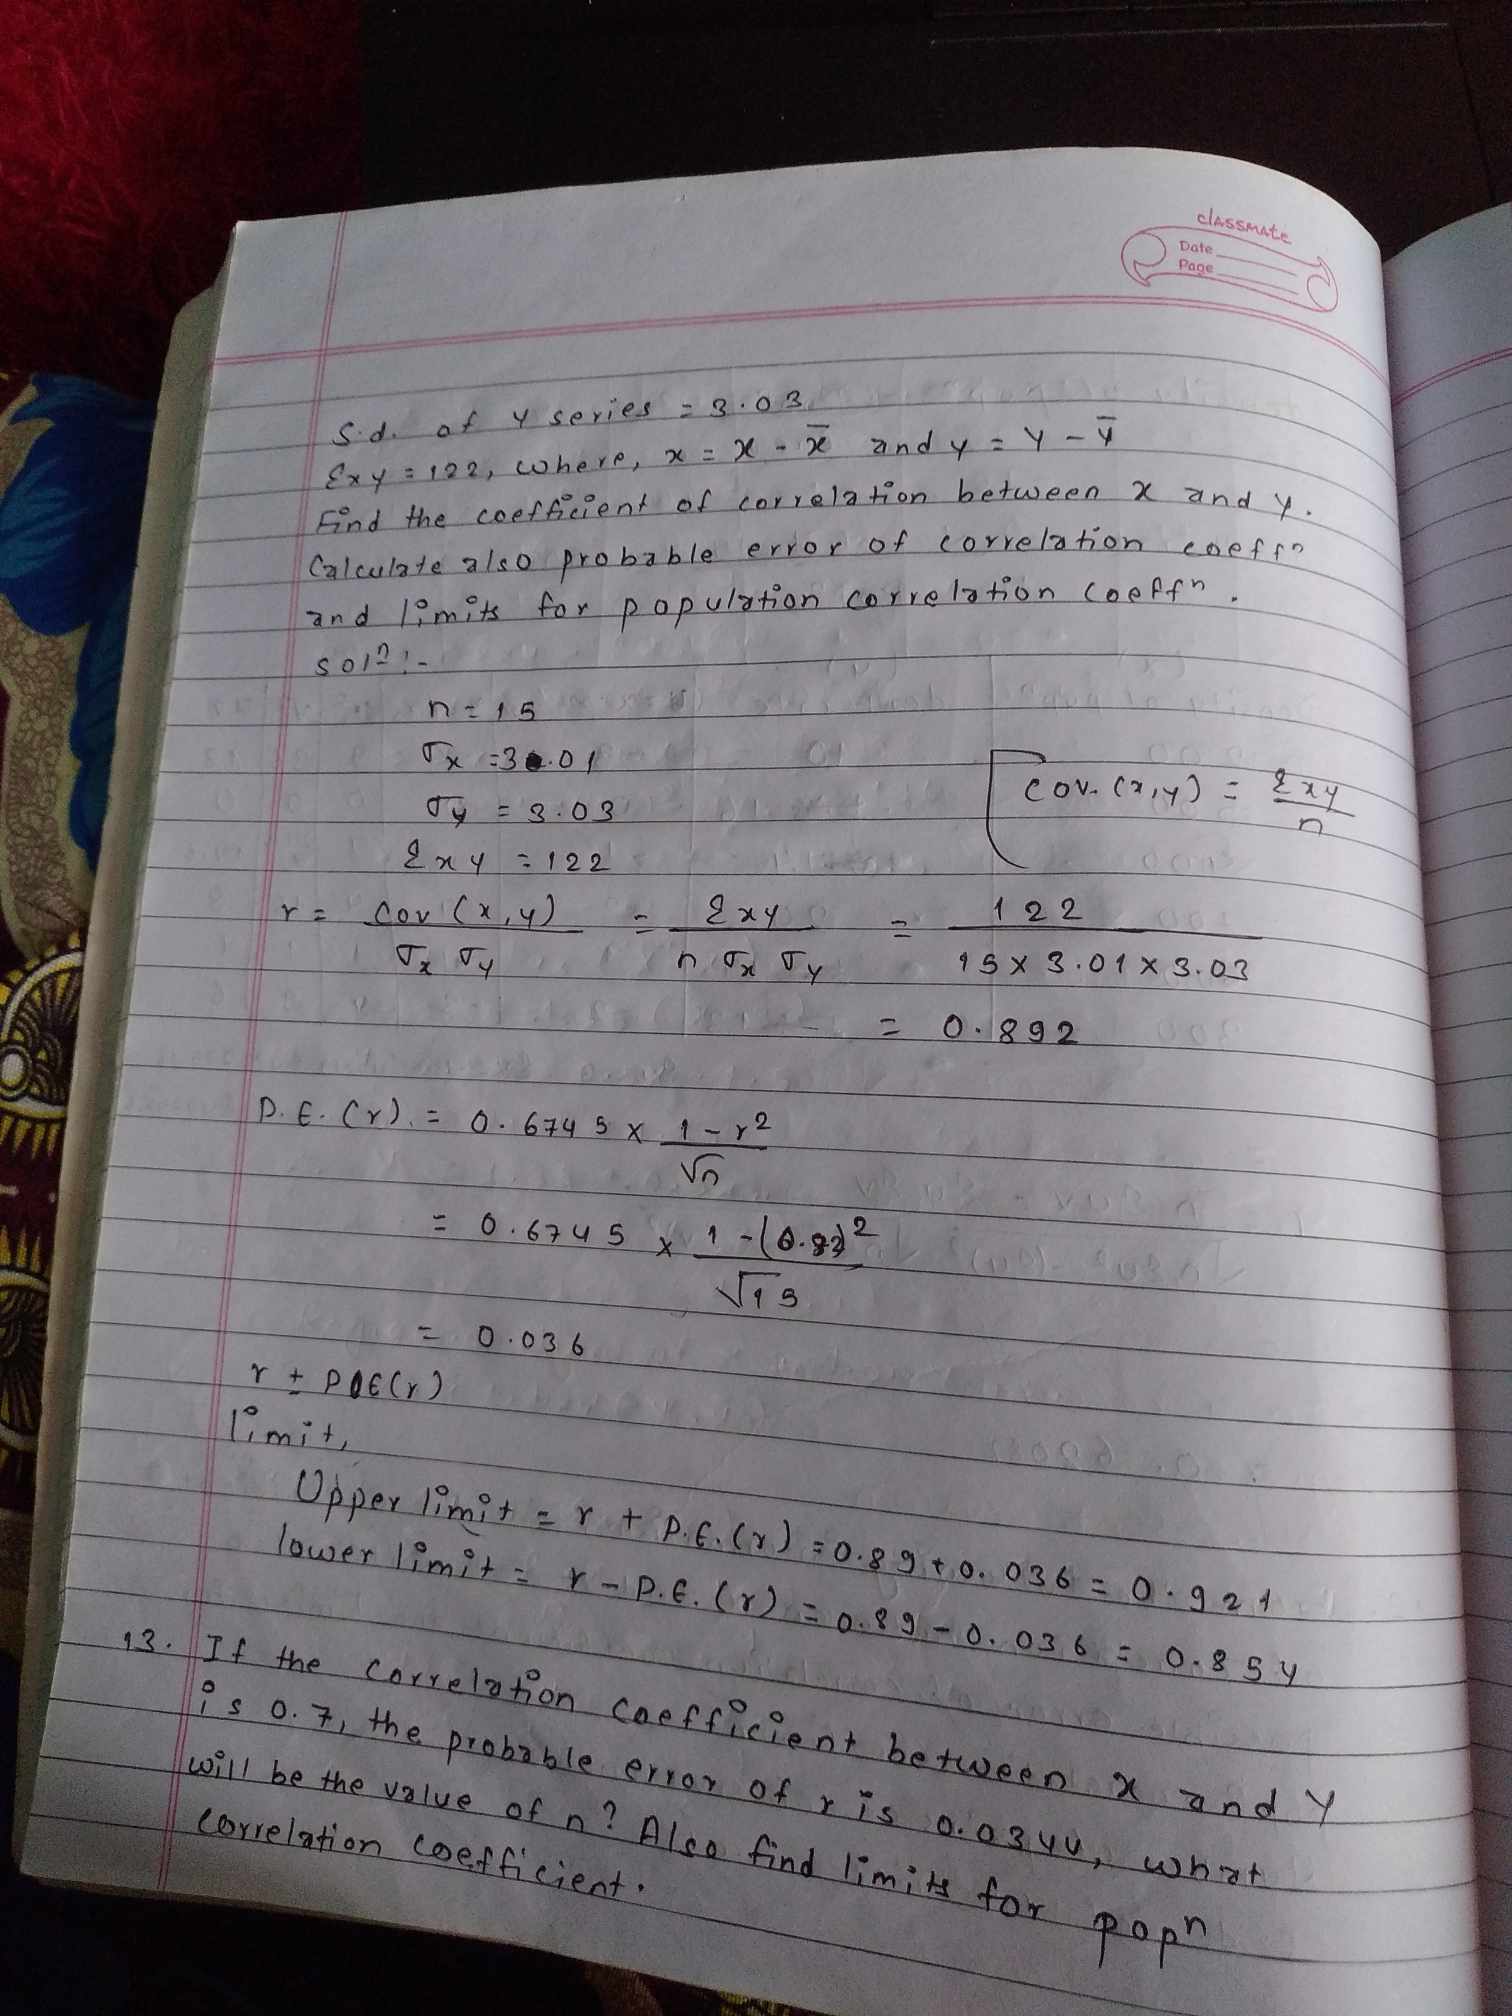 classmate
Date
Page
S.d. of y series = 3.03
Σxy = 122, where, x = x - x̄ and y = y - ȳ
Find the coefficient of correlation between x and y.
Calculate also probable error of correlation coeffn
and limits for population correlation coeffn.
Soln:-
n = 15
σx = 3.01
σy = 3.03
Σxy = 122
cov. (x,y) = Σxy / n
r = cov (x,y) / σx σy = Σxy / n σx σy = 122 / 15 x 3.01 x 3.03
= 0.892
P.E. (r). = 0.6745 x 1 - r² / √n
= 0.6745 x 1 - (0.89)² / √15
= 0.036
r ± P.E(r)
limit,
Upper limit = r + P.E. (r) = 0.89 + 0.036 = 0.921
lower limit = r - P.E. (r) = 0.89 - 0.036 = 0.854
13. If the correlation coefficient between x and y
is 0.7, the probable error of r is 0.0344, what
will be the value of n? Also find limits for popn
correlation coefficient.